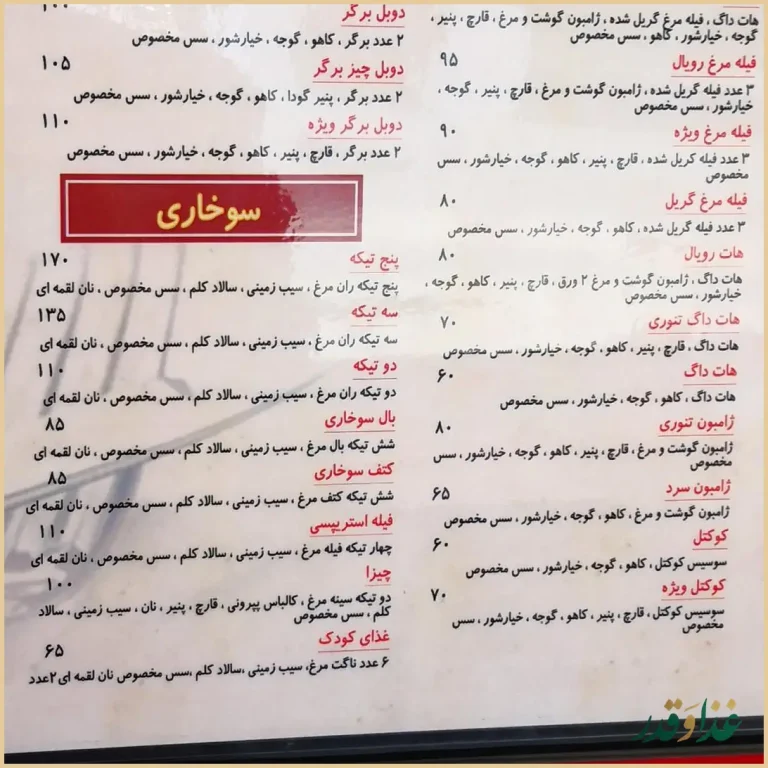 هات داگ ، فیله مرغ گریل شده ، ژامبون گوشت و مرغ ، قارچ ، پنیر ،
گوجه ، خیارشور ، کاهو ، سس مخصوص
فیله مرغ رویال ۹۵
۳ عدد فیله گریل شده ، ژامبون گوشت و مرغ ، قارچ ، پنیر ، گوجه ،
خیارشور ، سس مخصوص
فیله مرغ ویژه ۹۰
۳ عدد فیله گریل شده ، قارچ ، پنیر ، کاهو ، گوجه ، خیارشور ، سس
مخصوص
فیله مرغ گریل ۸۰
۳ عدد فیله گریل شده ، کاهو ، گوجه ، خیارشور ، سس مخصوص
هات رویال ۸۰
هات داگ ، ژامبون گوشت و مرغ ۲ ورق ، قارچ ، پنیر ، کاهو ، گوجه ،
خیارشور ، سس مخصوص
هات داگ تنوری ۷۰
هات داگ ، قارچ ، پنیر ، کاهو ، گوجه ، خیارشور ، سس مخصوص
هات داگ ۶۰
هات داگ ، کاهو ، گوجه ، خیارشور ، سس مخصوص
ژامبون تنوری ۸۰
ژامبون گوشت و مرغ ، قارچ ، پنیر ، کاهو ، گوجه ، خیارشور ، سس
مخصوص
ژامبون سرد ۶۵
ژامبون گوشت و مرغ ، کاهو ، گوجه ، خیارشور ، سس مخصوص
کوکتل ۶۰
سوسیس کوکتل ، کاهو ، گوجه ، خیارشور ، سس مخصوص
کوکتل ویژه ۷۰
سوسیس کوکتل ، قارچ ، پنیر ، کاهو ، گوجه ، خیارشور ، سس
مخصوص
دوبل برگر ۱۰۰
۲ عدد برگر ، کاهو ، گوجه ، خیارشور ، سس مخصوص
دوبل چیز برگر ۱۰۵
۲ عدد برگر ، پنیر گودا ، کاهو ، گوجه ، خیارشور ، سس مخصوص
دوبل برگر ویژه ۱۱۰
۲ عدد برگر ، قارچ ، پنیر ، کاهو ، گوجه ، خیارشور ، سس مخصوص
سوخاری
پنج تیکه ۱۷۰
پنج تیکه ران مرغ ، سیب زمینی ، سالاد کلم ، سس مخصوص ، نان لقمه ای
سه تیکه ۱۳۵
سه تیکه ران مرغ ، سیب زمینی ، سالاد کلم ، سس مخصوص ، نان لقمه ای
دو تیکه ۱۱۰
دو تیکه ران مرغ ، سیب زمینی ، سالاد کلم ، سس مخصوص ، نان لقمه ای
بال سوخاری ۸۵
شش تیکه بال مرغ ، سیب زمینی ، سالاد کلم ، سس مخصوص ، نان لقمه ای
کتف سوخاری ۸۵
شش تیکه کتف مرغ ، سیب زمینی ، سالاد کلم ، سس مخصوص ، نان لقمه ای
فیله استریپسی ۱۱۰
چهار تیکه فیله مرغ ، سیب زمینی ، سالاد کلم ، سس مخصوص ، نان لقمه ای
چیزا ۱۰۰
دو تیکه سینه مرغ ، کالباس پپرونی ، قارچ ، پنیر ، نان ، سیب زمینی ، سالاد
کلم ، سس مخصوص
غذای کودک ۶۵
۶ عدد ناگت مرغ، سیب زمینی ،سالاد کلم ،سس مخصوص نان لقمه ای ۲عدد
غذا و قدر